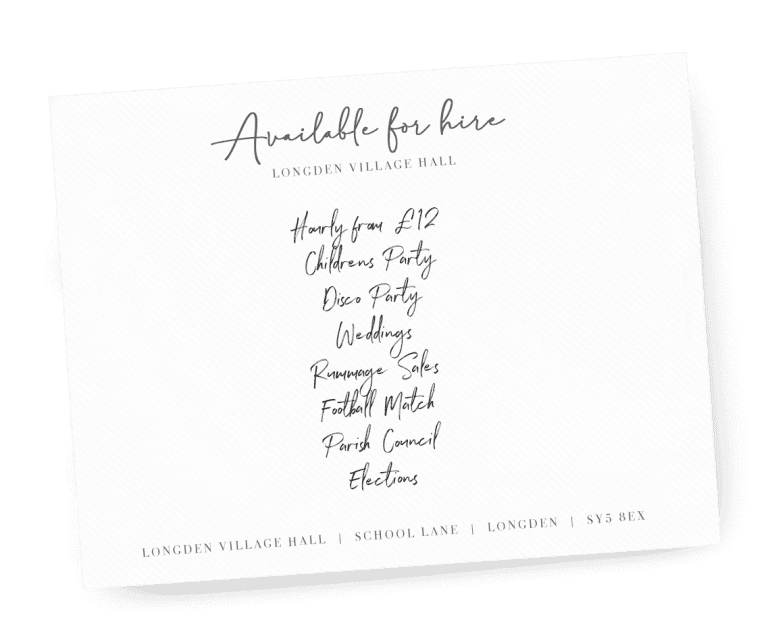 Available for hire
LONGDEN VILLAGE HALL
Hourly from £12
Childrens Party
Disco Party
Weddings
Rummage Sales
Football Match
Parish Council
Elections
LONGDEN VILLAGE HALL | SCHOOL LANE | LONGDEN | SY5 8EX